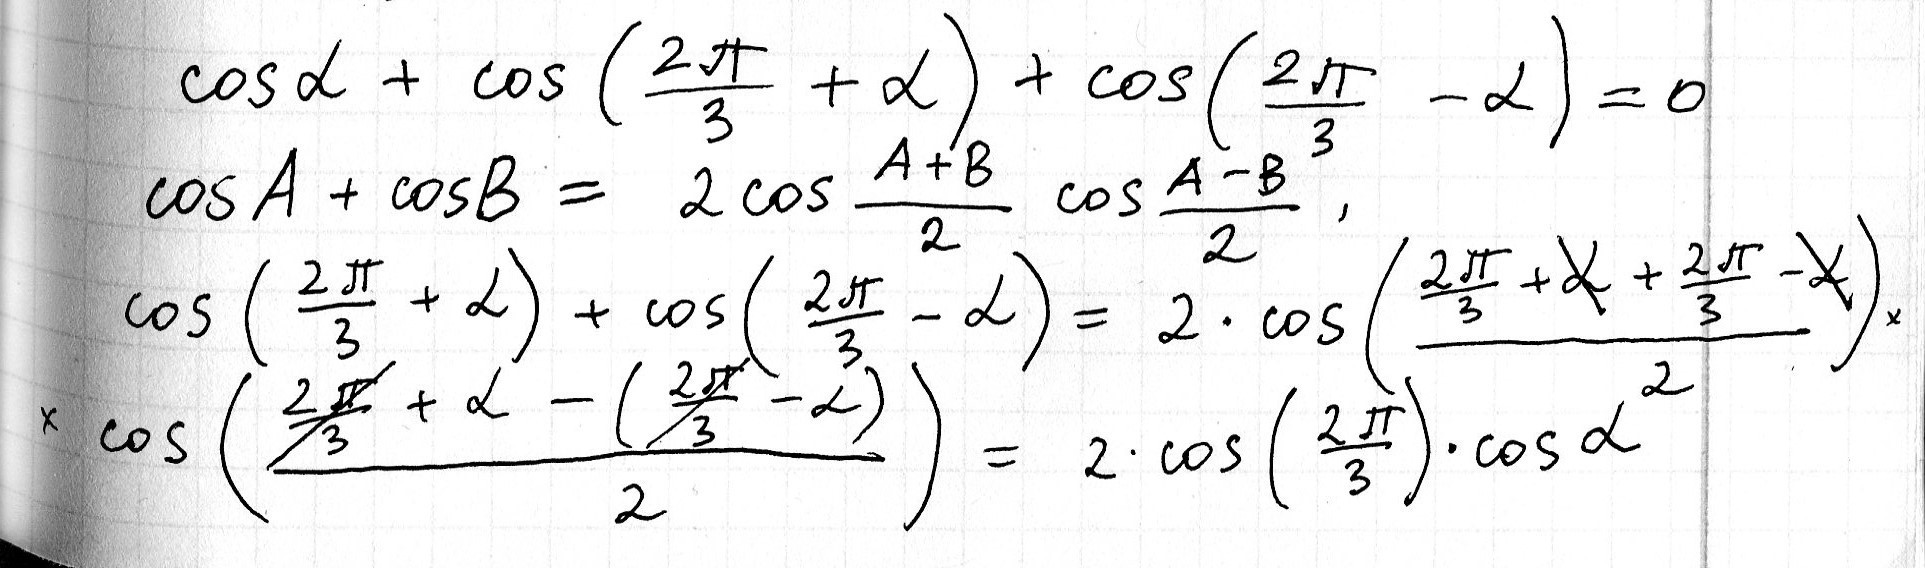 cos α + cos(2π/3 + α) + cos(2π/3 − α) = 0
cos A + cos B = 2 cos (A + B)/2 cos (A − B)/2 ,
cos(2π/3 + α) + cos(2π/3 − α) = 2 · cos((2π/3 + α + 2π/3 − α)/2) ×
× cos((2π/3 + α − (2π/3 − α))/2) = 2 · cos(2π/3) · cos α